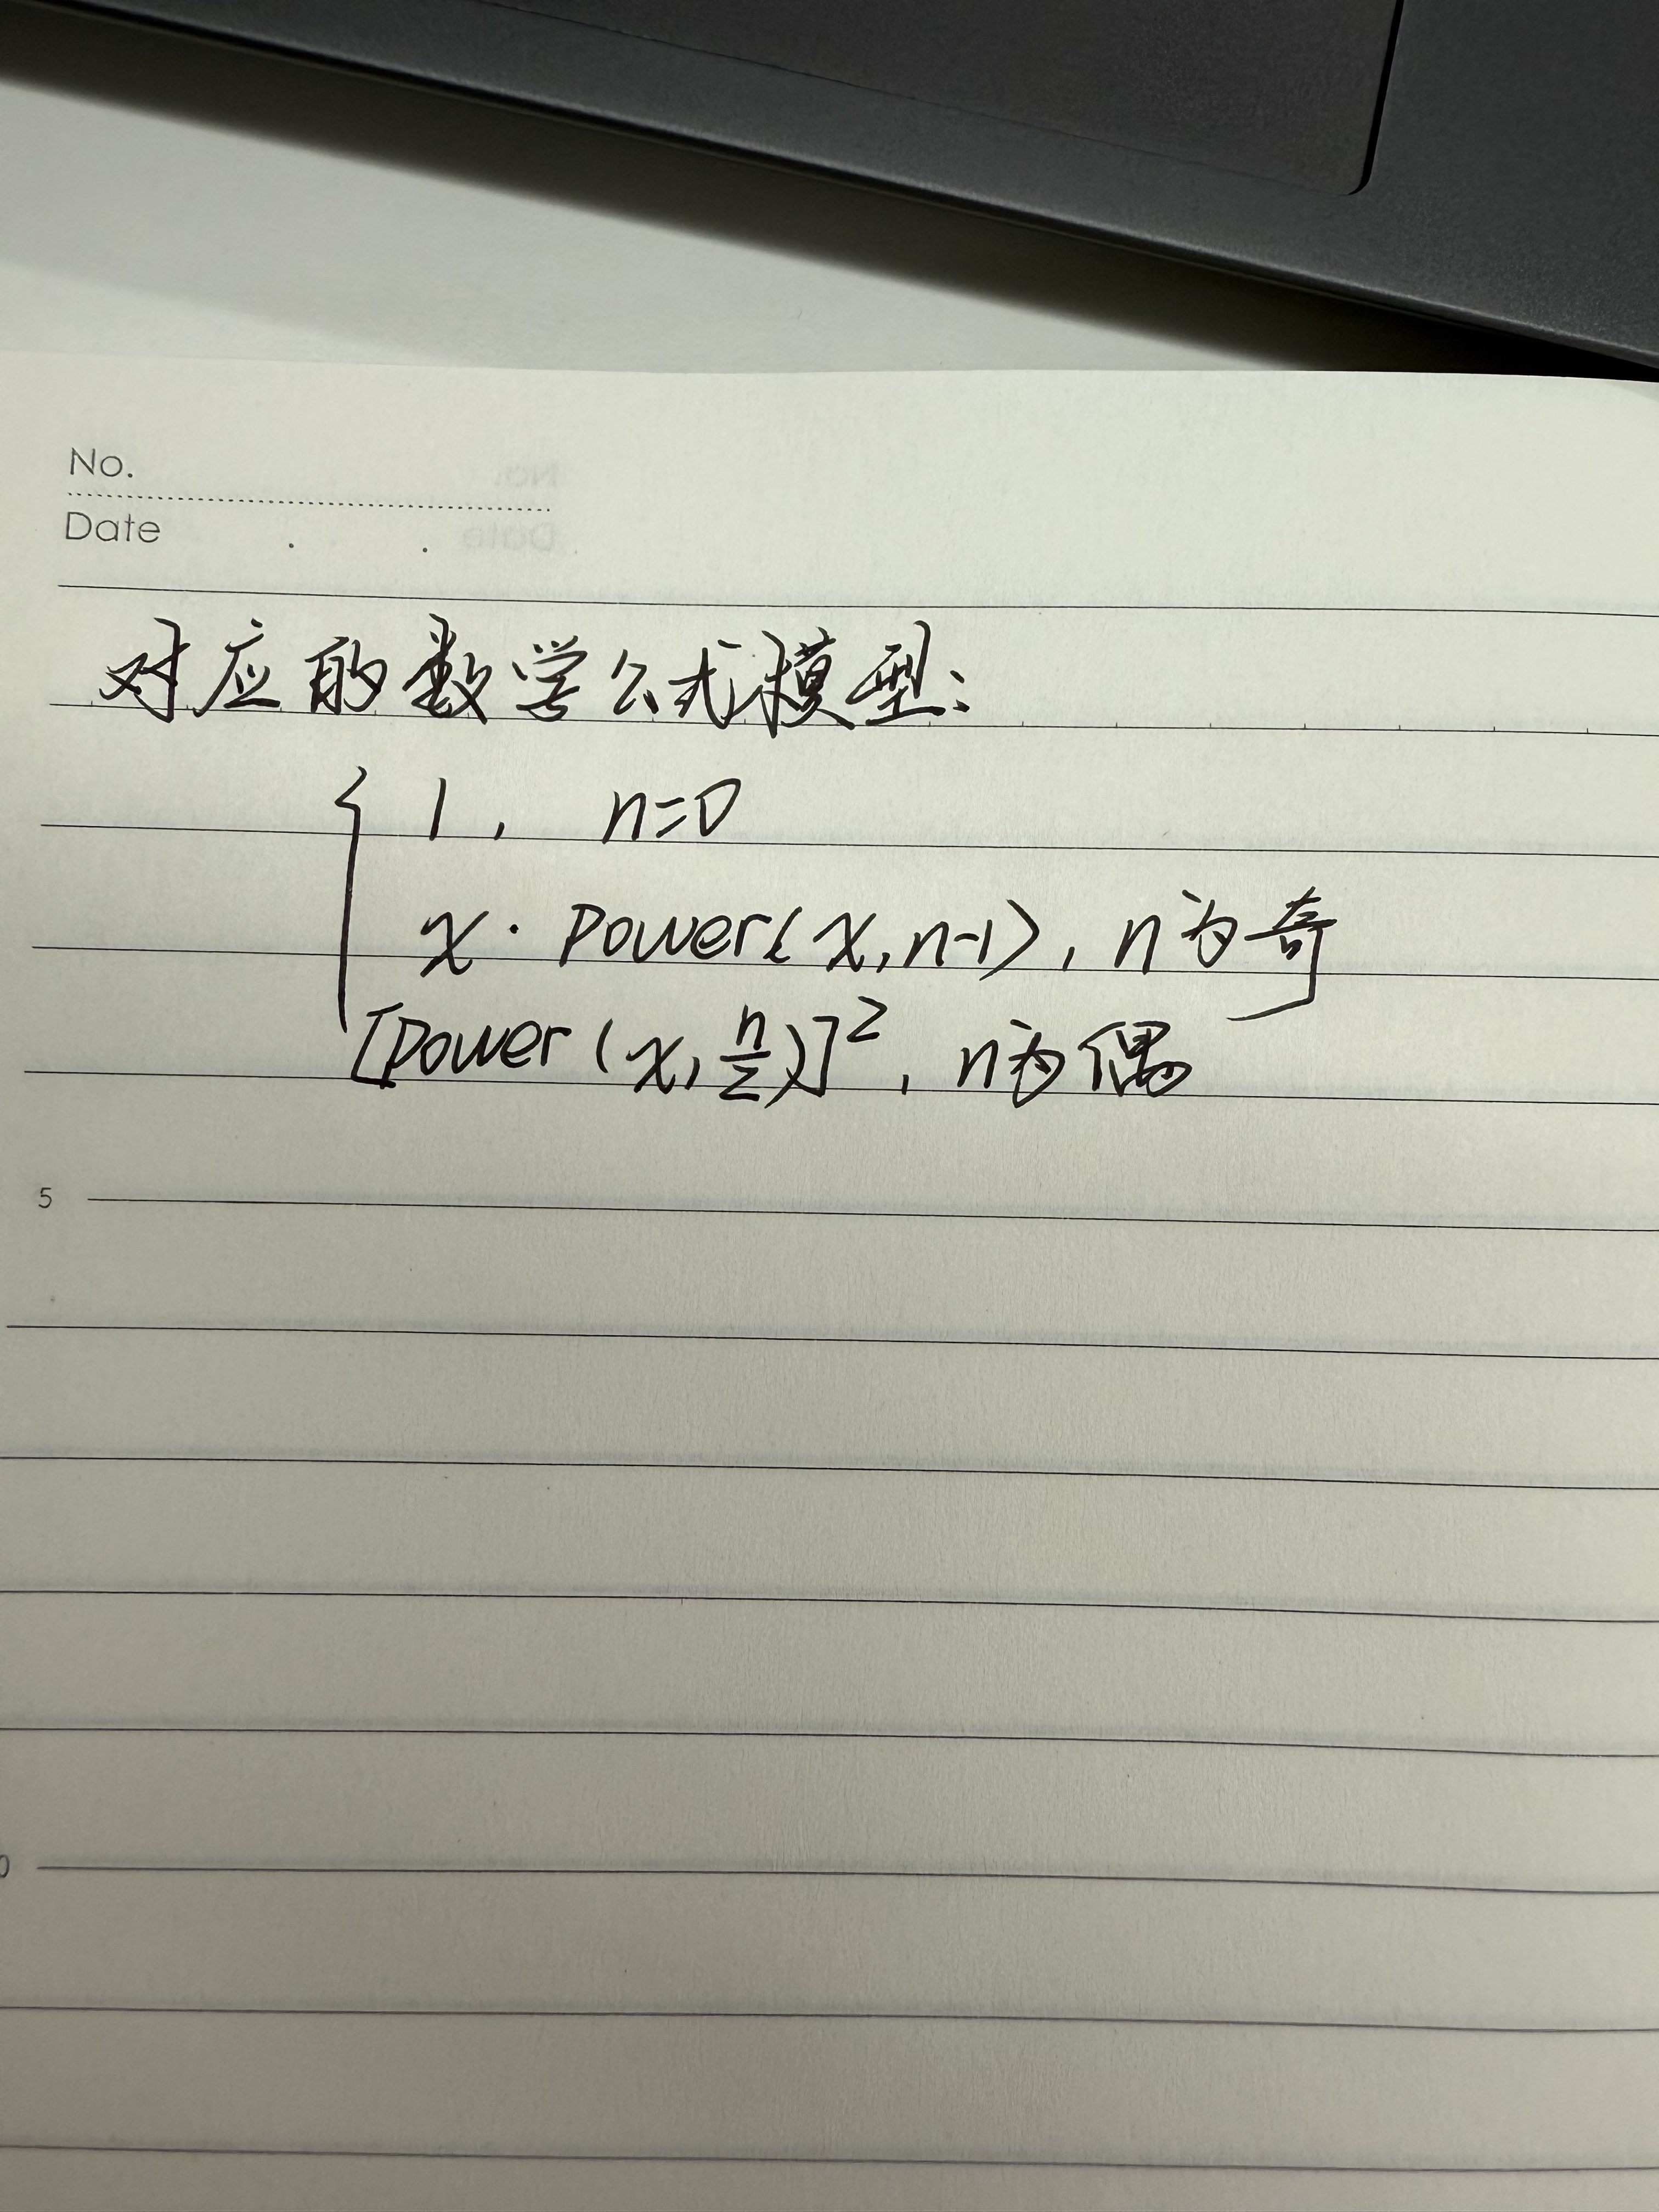 No.
Date
对应的数学公式模型:
{ 1, n=0
x · Power(x, n-1), n为奇
[Power(x, n/2)]², n为偶
5
0